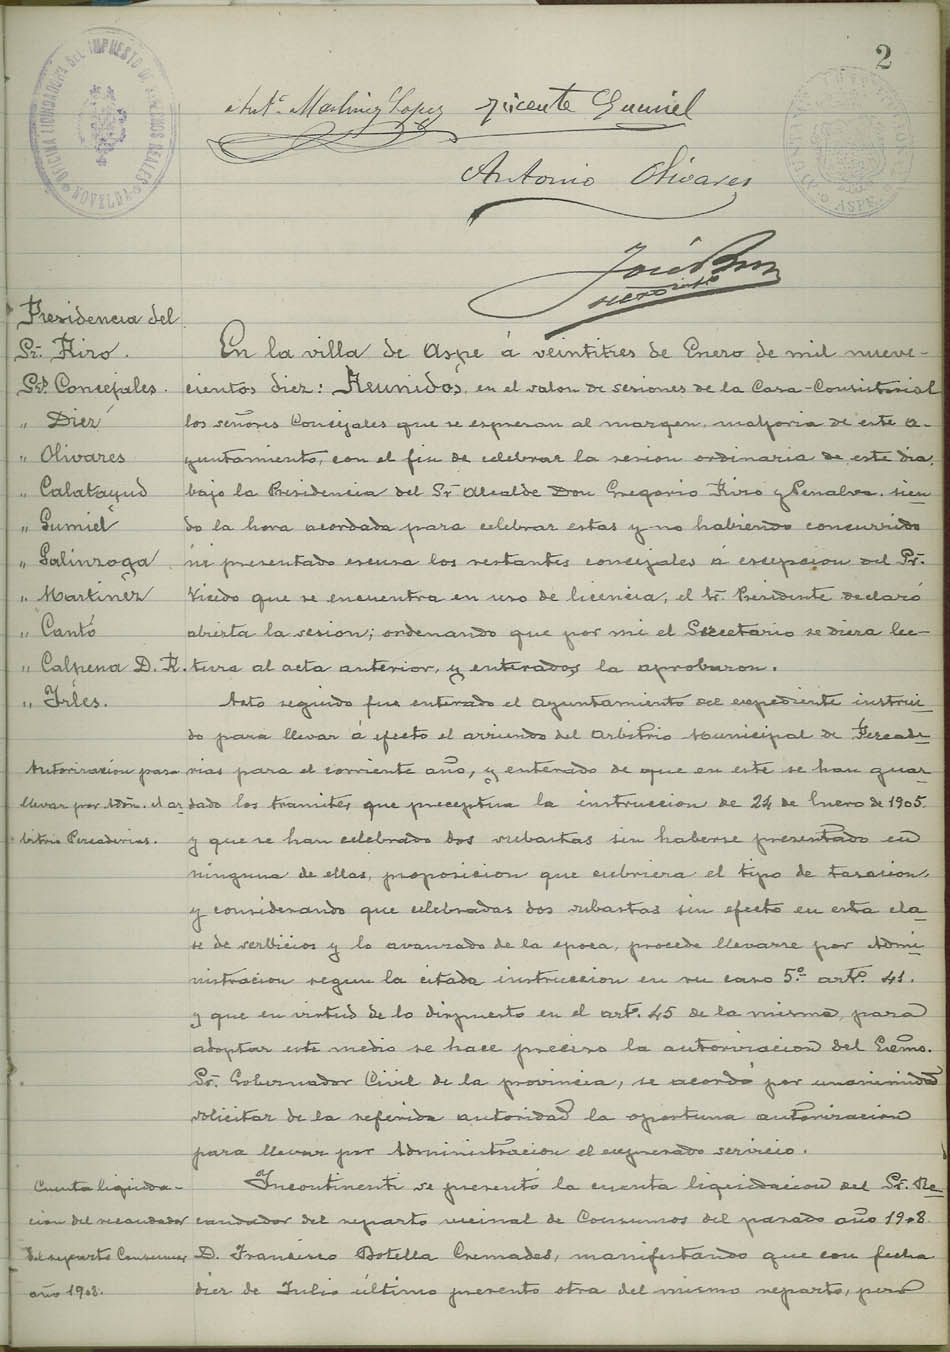 2
OFICINA LIQUIDADORA DEL IMPUESTO DE DERECHOS REALES
NOVELDA
ASPE
Antº. Martinez Lopez Vicente Gumiel
Antonio Olivares
José
Presidencia del
Sr. Kiro.
Sres. Concejales.
" Diez
" Olivares
" Calatayud
" Gumiel
" Galinzoga
" Martinez
" Cantó
" Calpena D. R.
" Irles.
En la villa de Aspe á veintitres de Enero de mil nueve-
cientos diez: Reunidos, en el salon de sesiones de la Casa-Consistorial
los señores Concejales que se espresan al margen, mayoria de este A-
yuntamiento, con el fin de celebrar la sesion ordinaria de este dia,
bajo la Presidencia del Sr Alcalde Don Gregorio Kiro y Penalva. sien
do la hora acordada para celebrar estas y no habiendo concurrido
ni presentado escusa los restantes concejales á escepcion del Sr.
Vicedo que se encuentra en uso de licencia, el Sr. Presidente declaró
abierta la sesion; ordenando que por mi el Secretario se diera lec-
tura al acta anterior, y enterados la aprobaron.
Autorizacion para
llevar por Admon. el ar
bitrio Pescaderias.
Acto seguido fue enterado el Ayuntamiento del expediente instrui
do para llevar á efecto el arriendo del Arbitrio Municipal de Pescade
rias para el corriente año, y enterado de que en este se han guar
dado los tramites que preceptua la instruccion de 24 de Enero de 1905.
y que se han celebrado dos subastas sin haberse presentado en
ninguna de ellas, proposicion que cubriera el tipo de tasacion,
y considerando que celebradas dos subastas sin efecto en esta cla
se de serbicios y lo avanzado de la epoca, procede llevarse por Admi
nistracion segun la citada instruccion en su caso 5º. artº. 41.
y que en virtud de lo dispuesto en el artº. 45 de la misma, para
adoptar este medio se hace preciso la autorizacion del Excmo.
Sr. Gobernador Civil de la provincia, se acordó por unanimidad
solicitar de la referida autoridad la oportuna autorizacion
para llevar por Administracion el expresado servicio.
Cuenta liquida-
cion del recaudador
del reparto Consumos
año 1908.
Incontinenti se presentó la cuenta liquidacion del Sr. Re
caudador del reparto vecinal de Consumos del pasado año 1908.
D. Francisco Botella Cremades, manifestando que con fecha
diez de Julio último presento otra del mismo reparto, pero